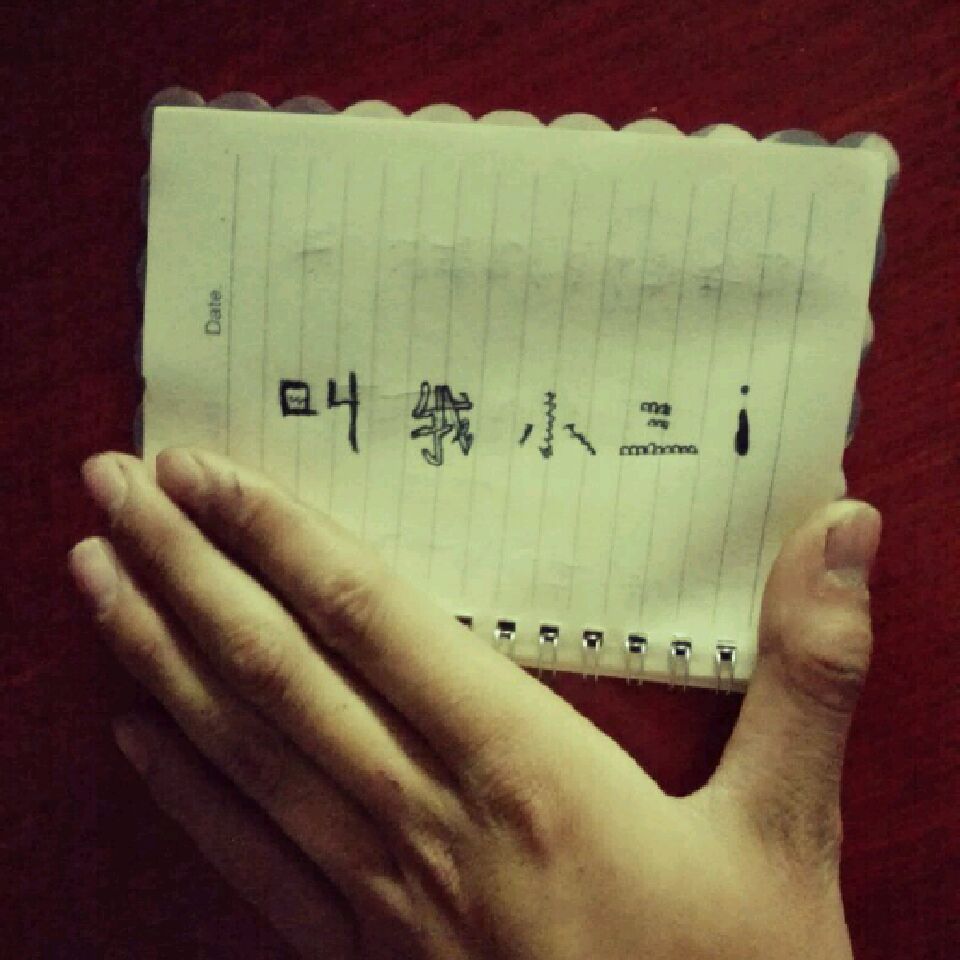 Date
叫我小旦!